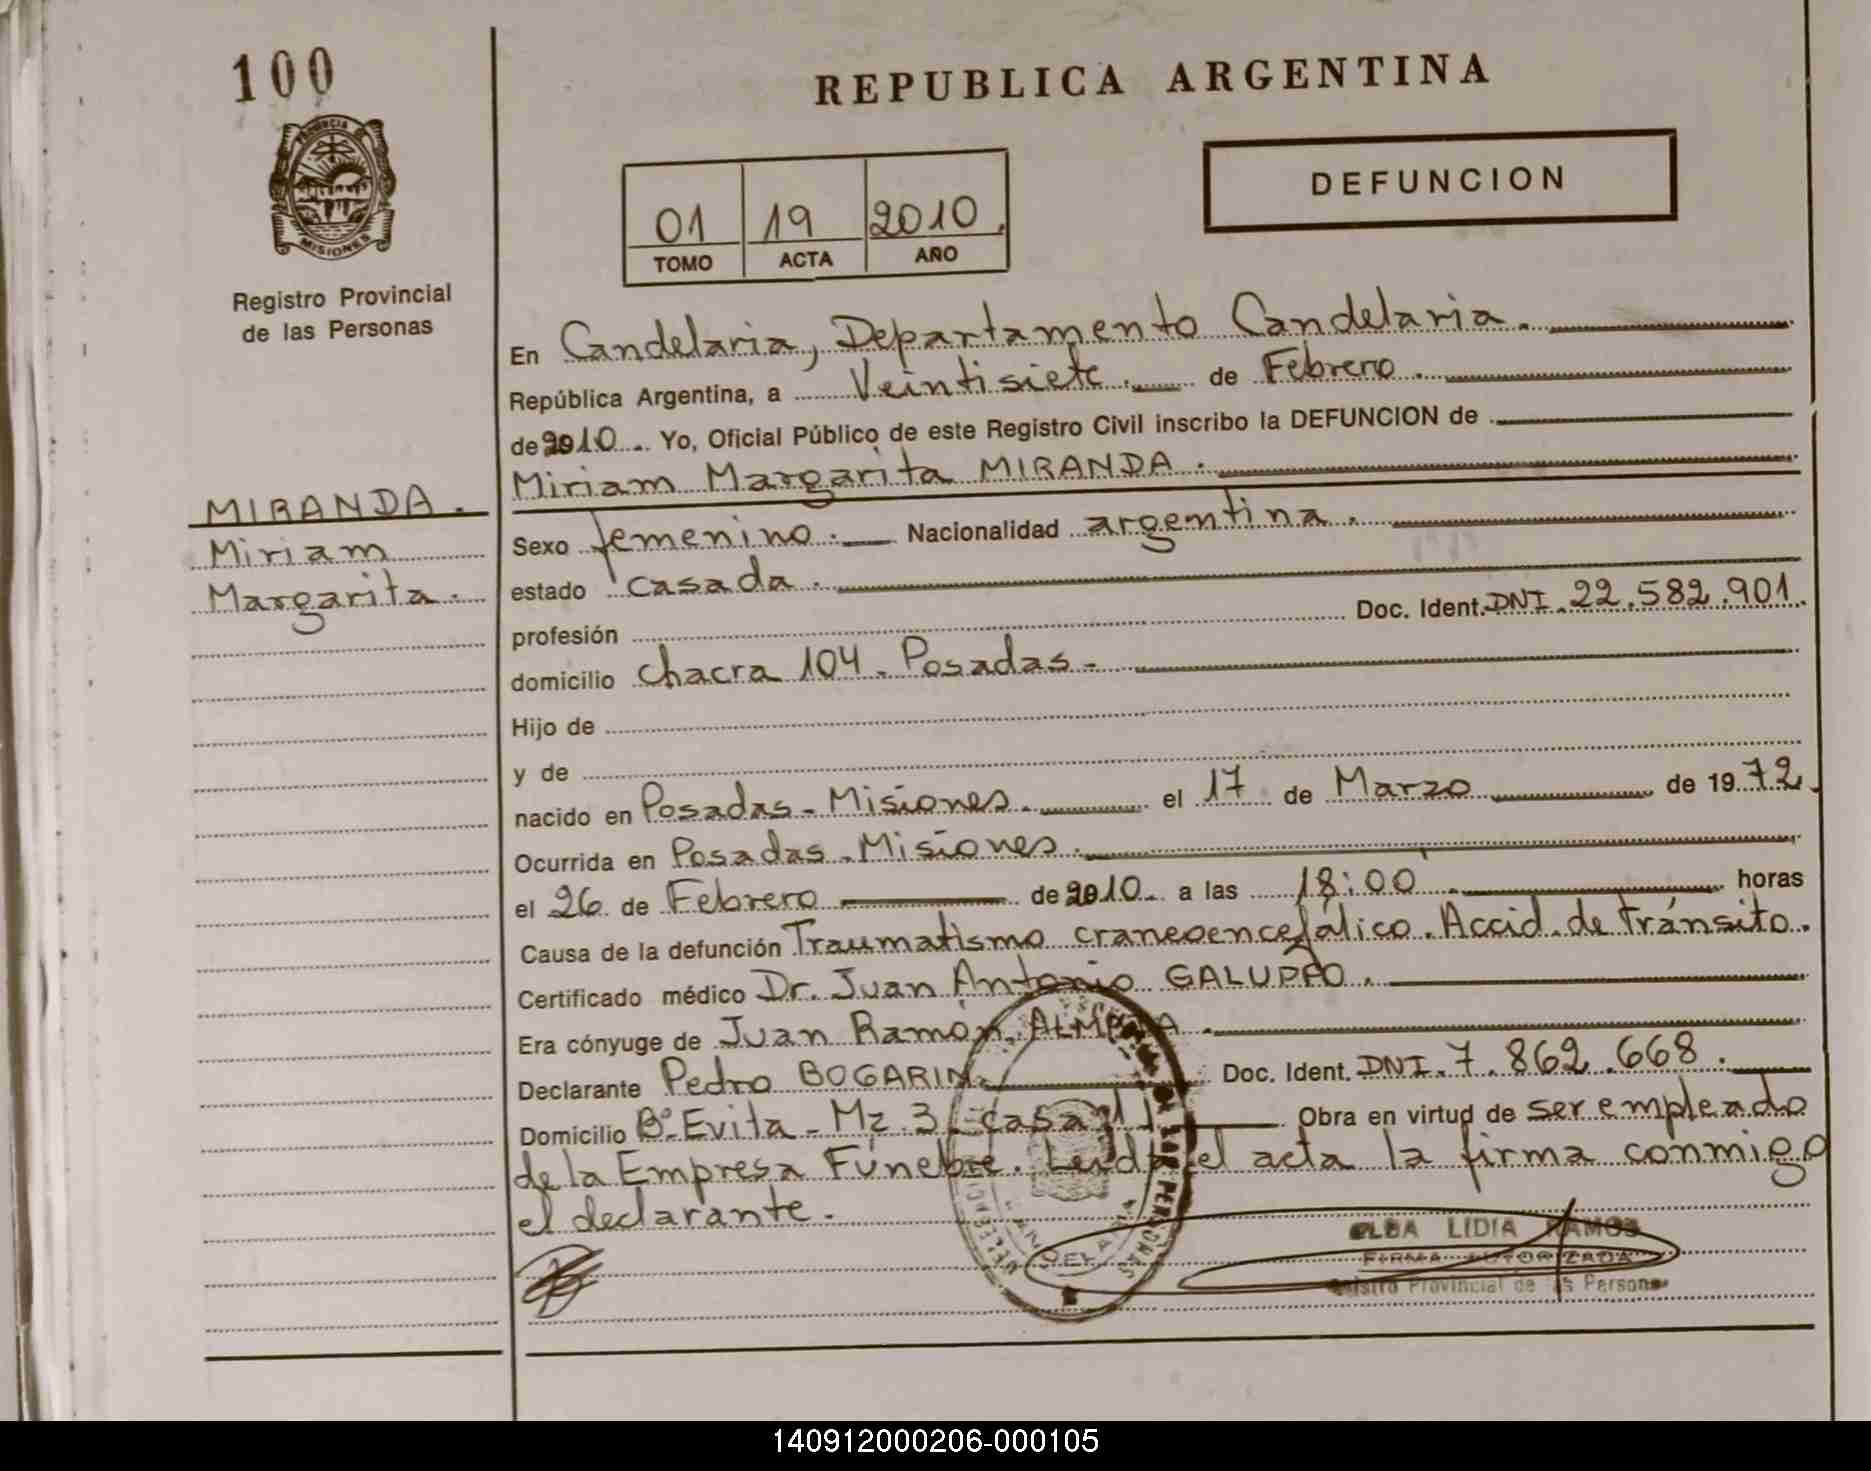 100
REPUBLICA ARGENTINA
PROVINCIA DE
MISIONES
Registro Provincial
de las Personas
01 19 2010
TOMO ACTA AÑO
DEFUNCION
En Candelaria, Departamento Candelaria.
República Argentina, a Veintisiete. de Febrero.
de 2010 Yo, Oficial Público de este Registro Civil inscribo la DEFUNCION de
Miriam Margarita MIRANDA.
MIRANDA.
Miriam
Margarita.
Sexo femenino. Nacionalidad argentina.
estado casada.
profesión Doc. Ident. DNI. 22.582.901.
domicilio chacra 104 - Posadas -
Hijo de
y de
nacido en Posadas - Misiones. el 17 de Marzo de 1972.
Ocurrida en Posadas - Misiones.
el 26 de Febrero de 2010 a las 18:00 horas
Causa de la defunción Traumatismo craneoencefálico. Accid. de tránsito.
Certificado médico Dr. Juan Antonio GALUPPO.
Era cónyuge de Juan Ramón
Declarante Pedro BOGARIN Doc. Ident. DNI. 7.862.668.
Domicilio Bº Evita - Mz. 3 - casa 11 Obra en virtud de ser empleado
de la Empresa Fúnebre. Leída el acta la firma conmigo
el declarante.
ELBA LIDIA RAMOS
FIRMA AUTORIZADA
Registro Provincial de las Personas
140912000206-000105